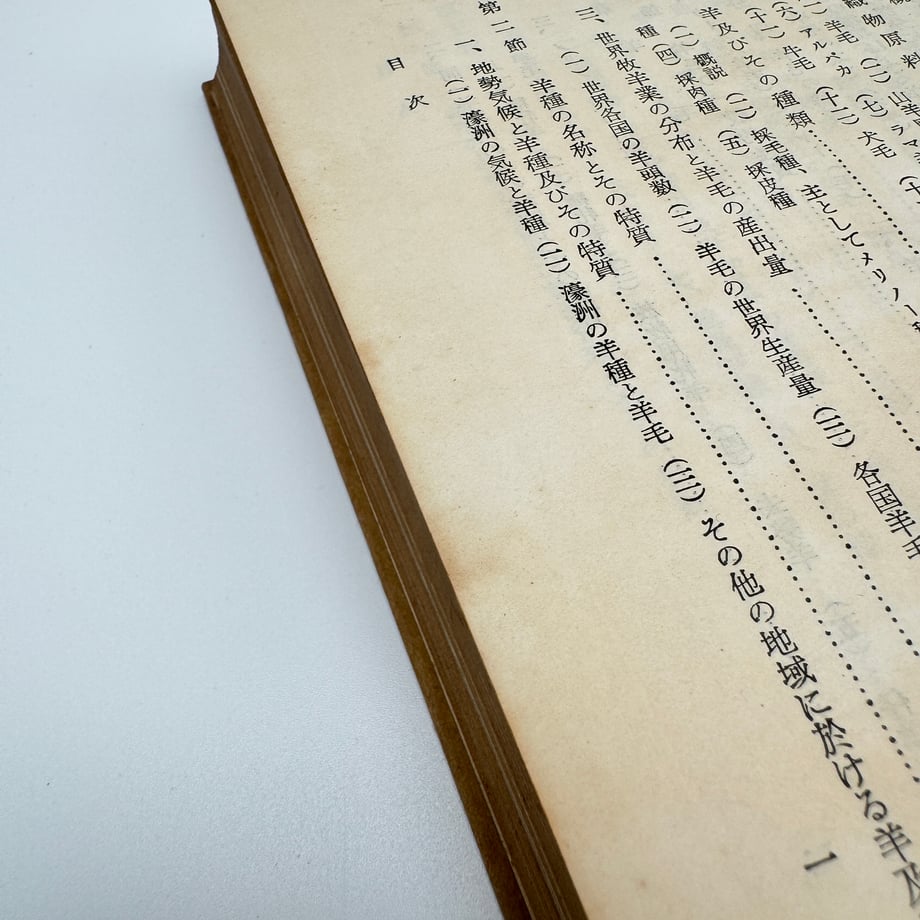 織物原料
羊毛 (二) 山羊
(六) アルパカ (七) ラマ
(十一) 牛毛 (十二) 犬毛
羊及びその種類
(一) 概説 (二) 採毛種、主としてメリノー
種 (四) 採肉種 (五) 採皮種
三、世界牧羊業の分布と羊毛の産出量
(一) 世界各国の羊頭数 (二) 羊毛の世界生産量 (三) 各国羊毛
第二節 羊種の名称とその特質
一、地勢気候と羊種及びその特質
(一) 濠洲の気候と羊種 (二) 濠洲の羊種と羊毛 (三) その他の地域に於ける羊及
目次
一